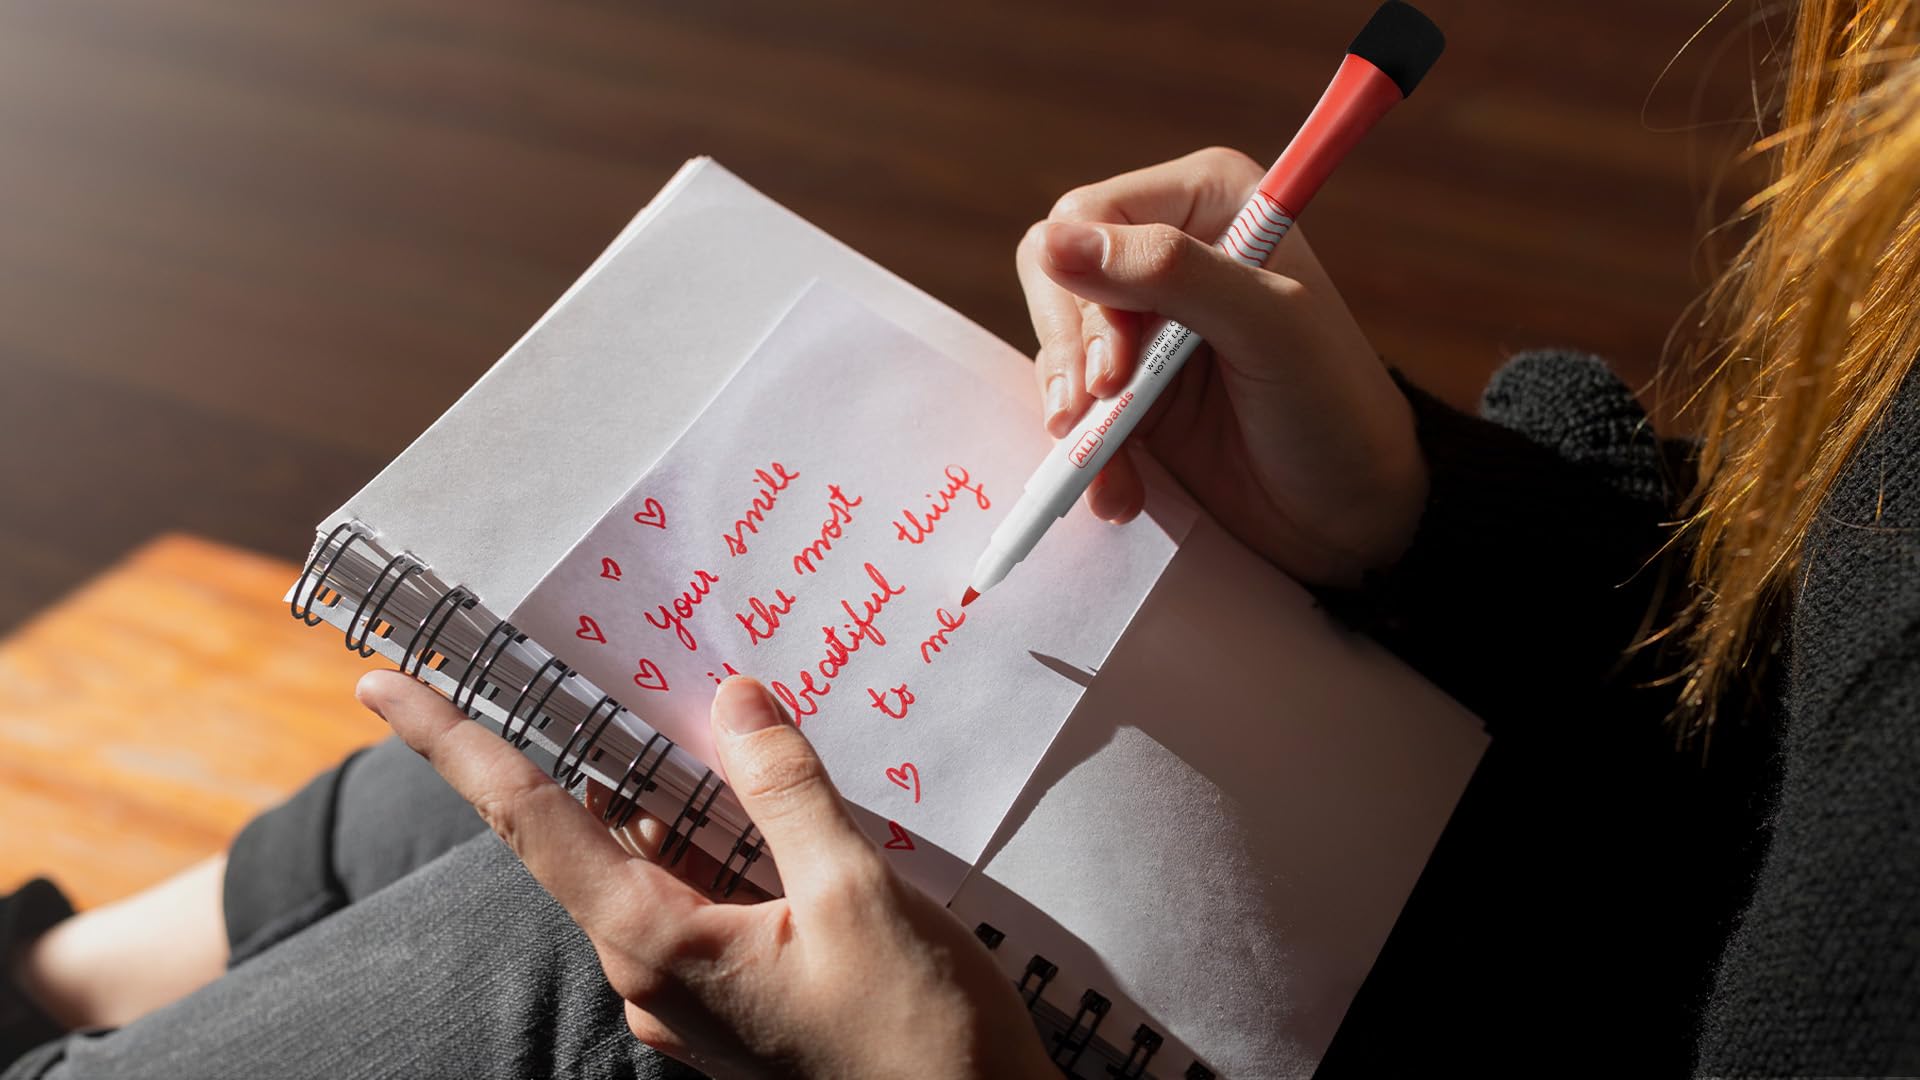 Your smile
is the most
beautiful thing
to me
ALLboards
BRILLIANCE C
WIPE OFF EAS
NOT POISONO